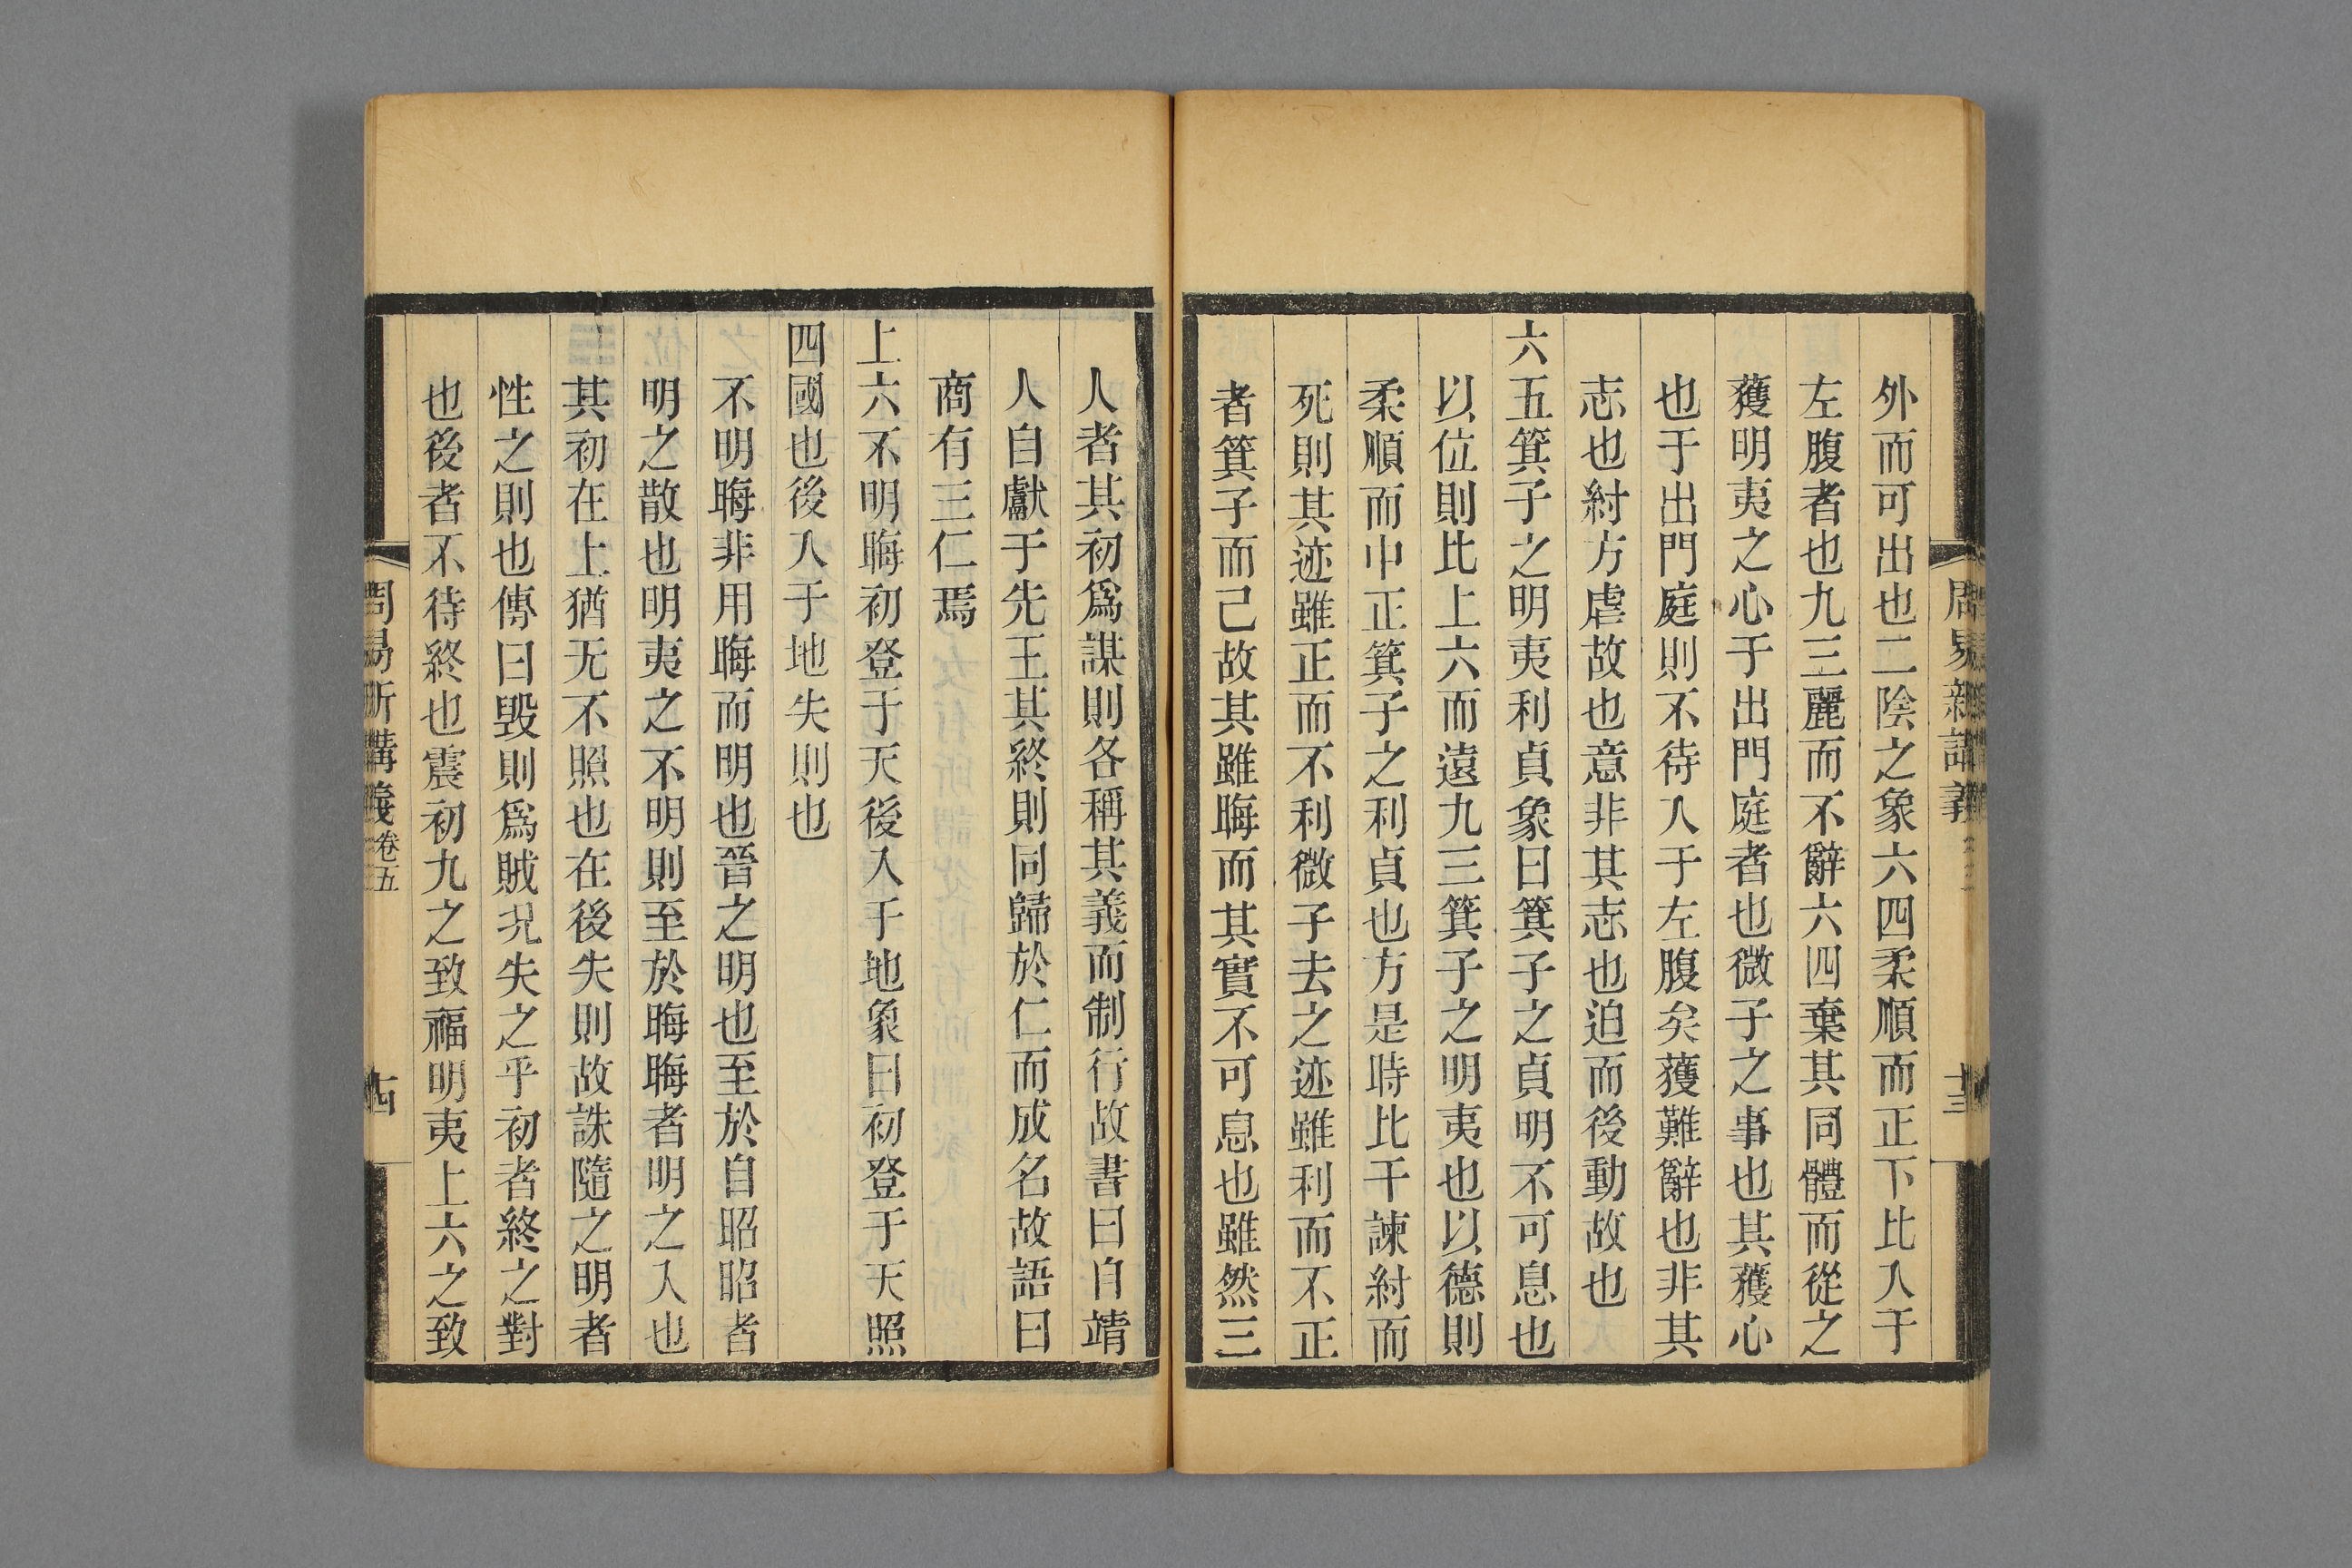 周易新講義
十三
外而可出也二陰之象六四柔順而正下比入于
左腹者也九三麗而不辭六四棄其同體而從之
獲明夷之心于出門庭者也微子之事也其獲心
也于出門庭則不待入于左腹矣獲難辭也非其
志也紂方虐故也意非其志也迫而後動故也
六五箕子之明夷利貞象曰箕子之貞明不可息也
以位則比上六而遠九三箕子之明夷也以德則
柔順而中正箕子之利貞也方是時比干諫紂而
死則其迹雖正而不利微子去之迹雖利而不正
者箕子而已故其雖晦而其實不可息也雖然三
人者其初爲謀則各稱其義而制行故書曰自靖
人自獻于先王其終則同歸於仁而成名故語曰
商有三仁焉
上六不明晦初登于天後入于地象曰初登于天照
四國也後入于地失則也
不明晦非用晦而明也晉之明也至於自昭昭者
明之散也明夷之不明則至於晦晦者明之入也
其初在上猶无不照也在後失則故誅隨之明者
性之則也傳曰毁則爲賊况失之乎初者終之對
也後者不待終也震初九之致福明夷上六之致
周易新講義卷五
十四